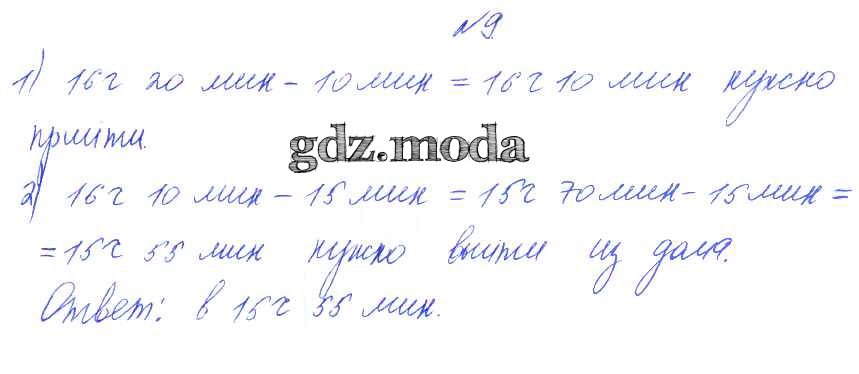 №9.
1) 16 ч 20 мин - 10 мин = 16 ч 10 мин нужно
прийти.
gdz.moda
2) 16 ч 10 мин - 15 мин = 15 ч 70 мин - 15 мин =
= 15 ч 55 мин нужно выйти из дома.
Ответ: в 15 ч 55 мин.